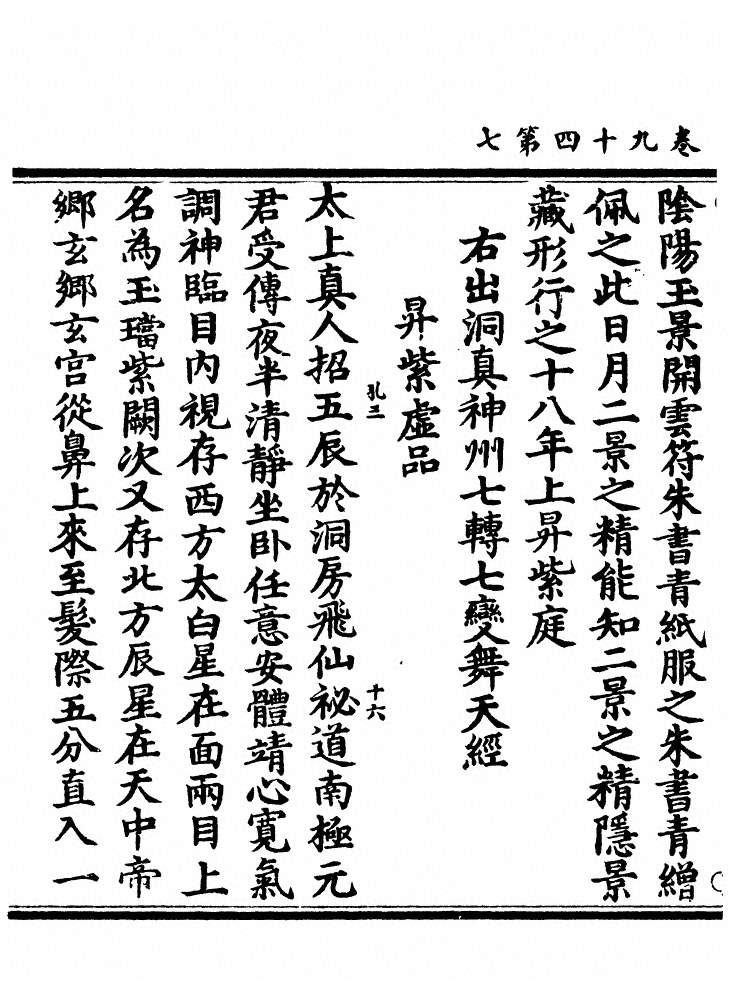 卷九十四第七
陰陽玉景開雲符朱書青紙服之朱書青繒
佩之此日月二景之精能知二景之精隱景
藏形行之十八年上昇紫庭
右出洞真神州七轉七變舞天經
昇紫虛品
孔三
十六
太上真人招五辰於洞房飛仙祕道南極元
君受傳夜半清靜坐臥任意安體靖心寬氣
調神臨目內視存西方太白星在面兩目上
名為玉璫紫闕次又存北方辰星在天中帝
鄉玄鄉玄宮從鼻上來至髮際五分直入一